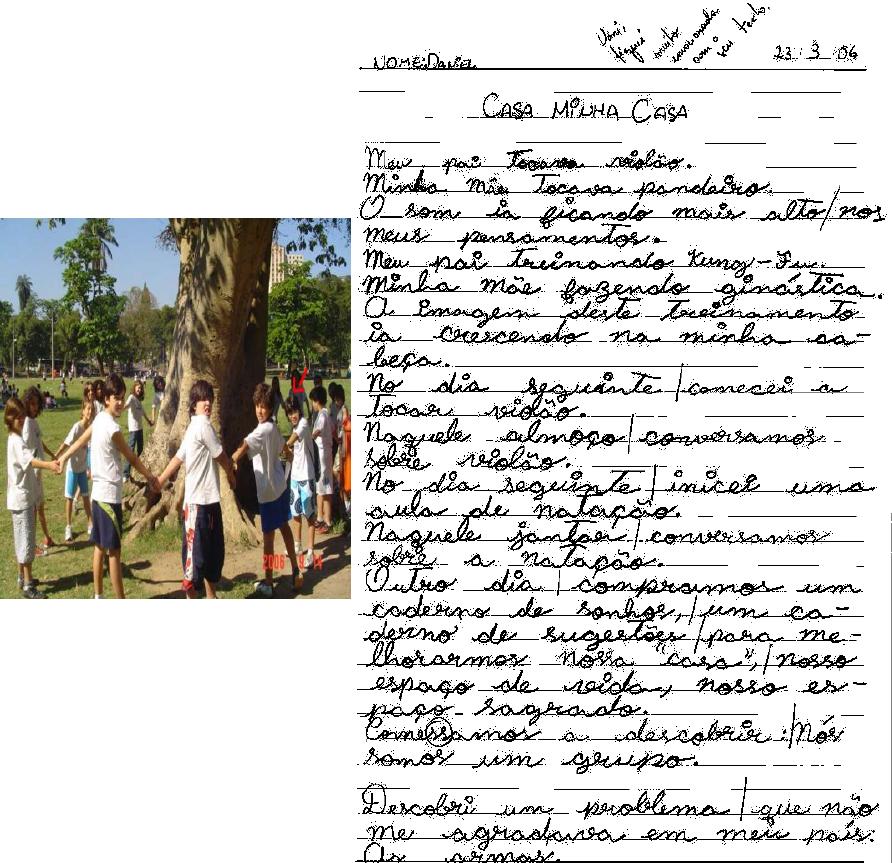 Dani,
fiquei
muito
emocionada
com o
seu texto.
23 3 06
NOME: Daniel
CASA MINHA CASA
Meu pai tocava violão.
Minha mãe tocava pandeiro.
O som ia ficando mais alto/nos
meus pensamentos.
Meu pai treinando Kung-Fu.
Minha mãe fazendo ginástica.
A imagem deste treinamento
ia crescendo na minha ca-
beça.
No dia seguinte/comecei a
tocar violão.
Naquele almoço/conversamos
sobre violão.
No dia seguinte/inicei uma
aula de natação.
Naquele jantar/conversamos
sobre a natação.
Outro dia/compramos um
caderno de sonhos,/um ca-
derno de sugestões/para me-
lhorarmos nossa "casa",/nosso
espaço de vida, nosso es-
paço sagrado.
Comessamos a descobrir:/Nós
somos um grupo.
Descobri um problema/que não
me agradava em meu país:
As armas.
2006 9 14